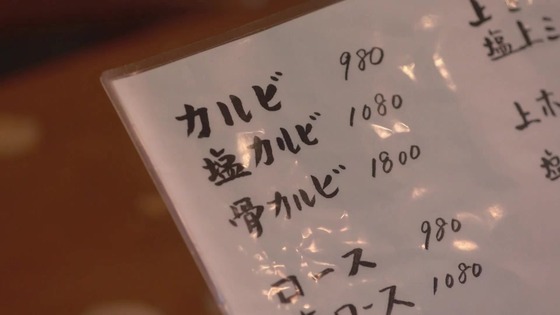 カルビ 980
塩カルビ 1080
骨カルビ 1800
ロース 980
ロース 1080
上
塩上ミ
上ホ
塩